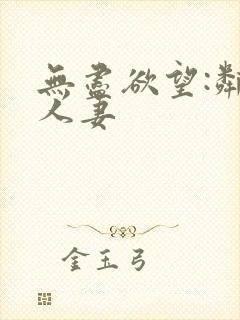 無盡欲望:鄰
人妻
金玉弓